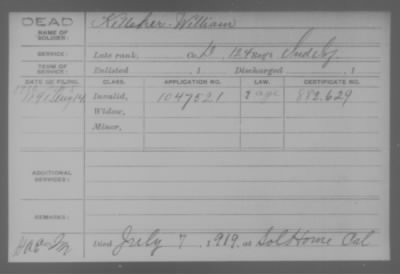 DEAD
NAME OF SOLDIER: Killeher William
SERVICE: Late rank, Co. D, 124 Reg't Ind Inf
TERM OF SERVICE: Enlisted , 1 Discharged , 1
DATE OF FILING. CLASS. APPLICATION NO. LAW. CERTIFICATE NO.
1891 Aug 14 Invalid, 1047521 age 882.629
Widow,
Minor,
ADDITIONAL SERVICES:
REMARKS:
Died July 7, 1919, at Sol Home Cal